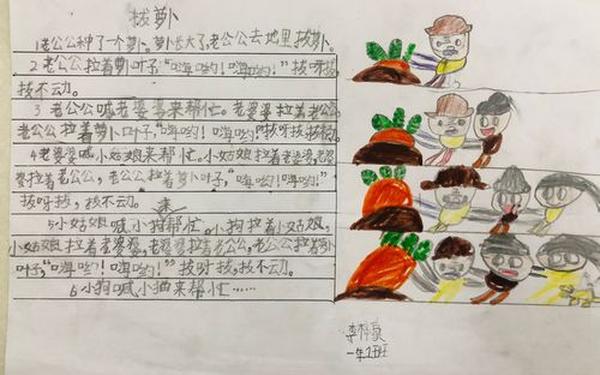 拔萝卜
1老公公种了一个萝卜。萝卜长大了,老公公去地里拔萝卜。
2 老公公拉着萝卜叶子,“嗨哟!嗨哟!”拔呀拔,
拔不动。
3 老公公喊老婆婆来帮忙。老婆婆拉着老公公,
老公公拉着萝卜叶子,“嗨哟!嗨哟!”拔呀拔,拔
4老婆婆喊小姑娘来帮忙。小姑娘拉着老婆婆,老婆
婆拉着老公公,老公公拉着萝卜叶子,“嗨哟!嗨哟!”
拔呀拔,拔不动。
来
5小姑娘喊小狗帮忙。小狗拉着小姑娘,
小姑娘拉着老婆婆,老婆婆拉着老公公,老公公拉着
叶子,“嗨哟!嗨哟!”拔呀拔,拔不动。
6小狗喊小猫来帮忙……
李
一年
班